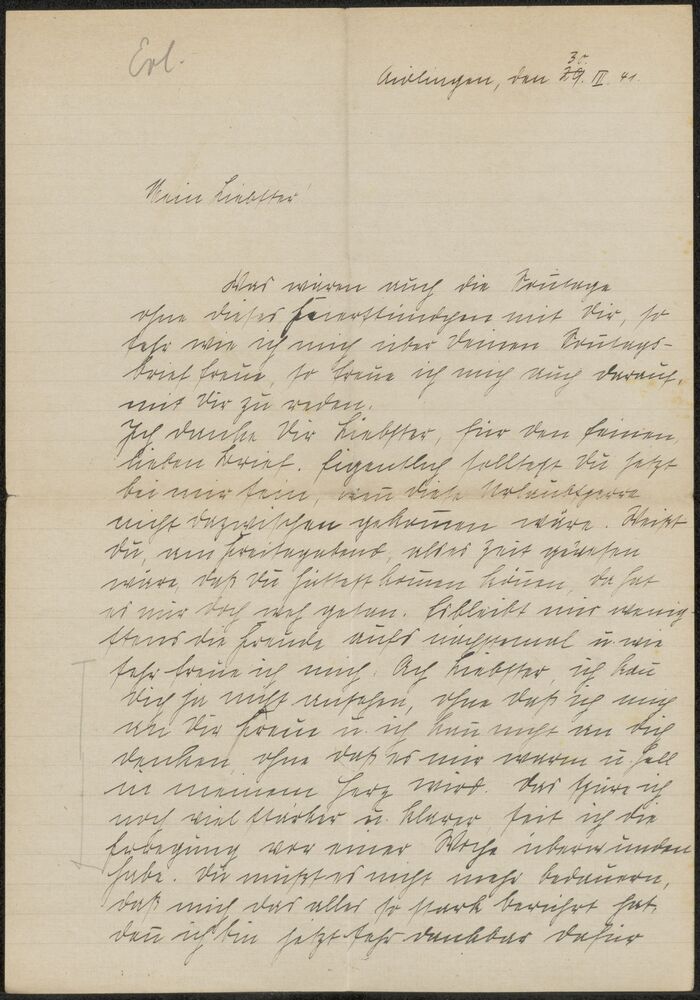 Erl.
Aidlingen, den 30. III. 41.
Mein Liebster!
Was wären auch die Sonntage
ohne dieses Feierstündchen mit Dir, so
sehr wie ich mich über Deinen Sonntags-
brief freue, so freue ich mich auch darauf,
mit Dir zu reden.
Ich danke Dir Liebster, für den feinen,
lieben Brief. Eigentlich solltest Du jetzt
bei mir sein, wenn diese Urlaubssperre
nicht dazwischen gekommen wäre. Weißt
Du, am Freitagabend, als es Zeit gewesen
wäre, daß Du hättest kommen können, da hat
es mir doch weh getan. Es bleibt mir wenig-
stens die Freude aufs nächstemal u. wie
sehr freue ich mich. Ach Liebster, ich kann
Dich ja nicht ansehen, ohne daß ich mich
an Dir freue u. ich kann nicht an Dich
denken, ohne daß es mir warm u. hell
in meinem Herz wird. Das spüre ich
noch viel stärker u. klarer, seit ich die
Erregung vor einer Woche überwunden
habe. Du mußt es nicht mehr bedauern,
daß mich das alles so stark berührt hat,
denn ich bin jetzt sehr dankbar dafür